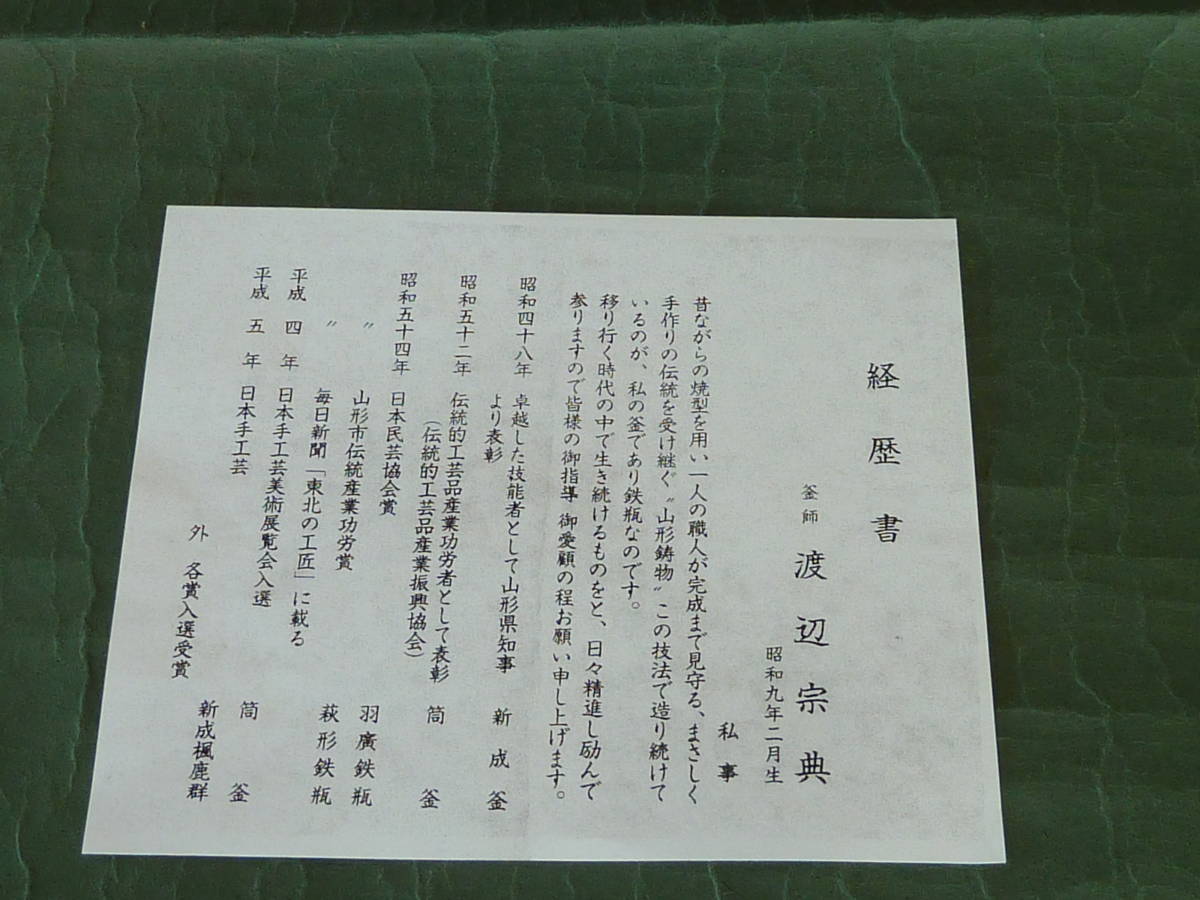 経歴書
釜師 渡辺宗典
昭和九年二月生
私事
昔ながらの焼型を用い一人の職人が完成まで見守る、まさしく
手作りの伝統を受け継ぐ〝山形鋳物〟この技法で造り続けて
いるのが、私の釜であり鉄瓶なのです。
移り行く時代の中で生き続けるものをと、日々精進し励んで
参りますので皆様の御指導 御愛顧の程お願い申し上げます。
昭和四十八年 卓越した技能者として山形県知事
より表彰 新成釜
昭和五十二年 伝統的工芸品産業功労者として表彰
(伝統的工芸品産業振興協会) 筒釜
昭和五十四年 日本民芸協会賞
〃 山形市伝統産業功労賞 羽廣鉄瓶
〃 毎日新聞「東北の工匠」に載る 萩形鉄瓶
平成四年 日本手工芸美術展覧会入選
平成五年 日本手工芸 筒釜
新成楓鹿群
外 各賞入選受賞